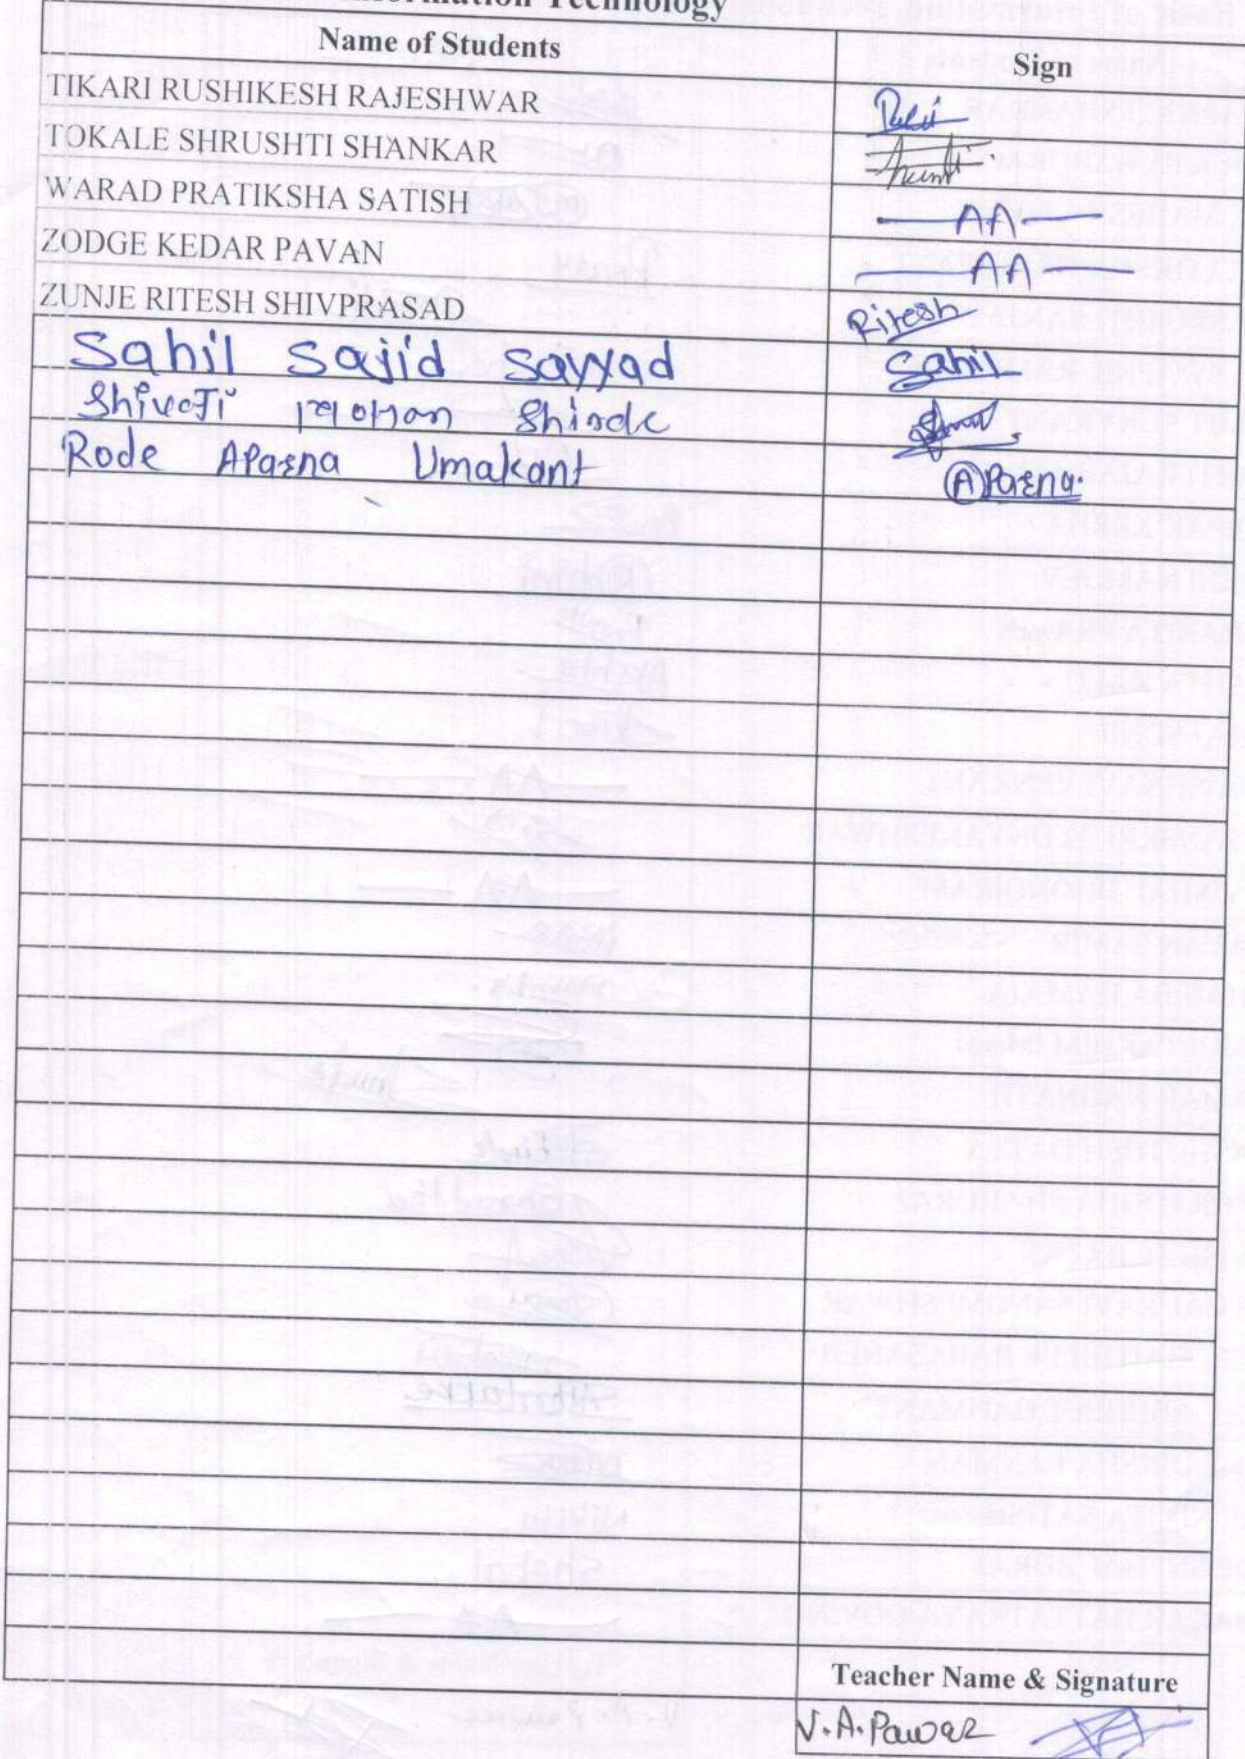 Information Technology
Name of Students Sign
TIKARI RUSHIKESH RAJESHWAR
TOKALE SHRUSHTI SHANKAR
WARAD PRATIKSHA SATISH AA
ZODGE KEDAR PAVAN AA
ZUNJE RITESH SHIVPRASAD Ritesh
Sahil Sajid Sayyad Sahil
Shivaji Mohan Shinde
Rode APasna Umakant APasna.
Teacher Name & Signature
V.A.Pawar